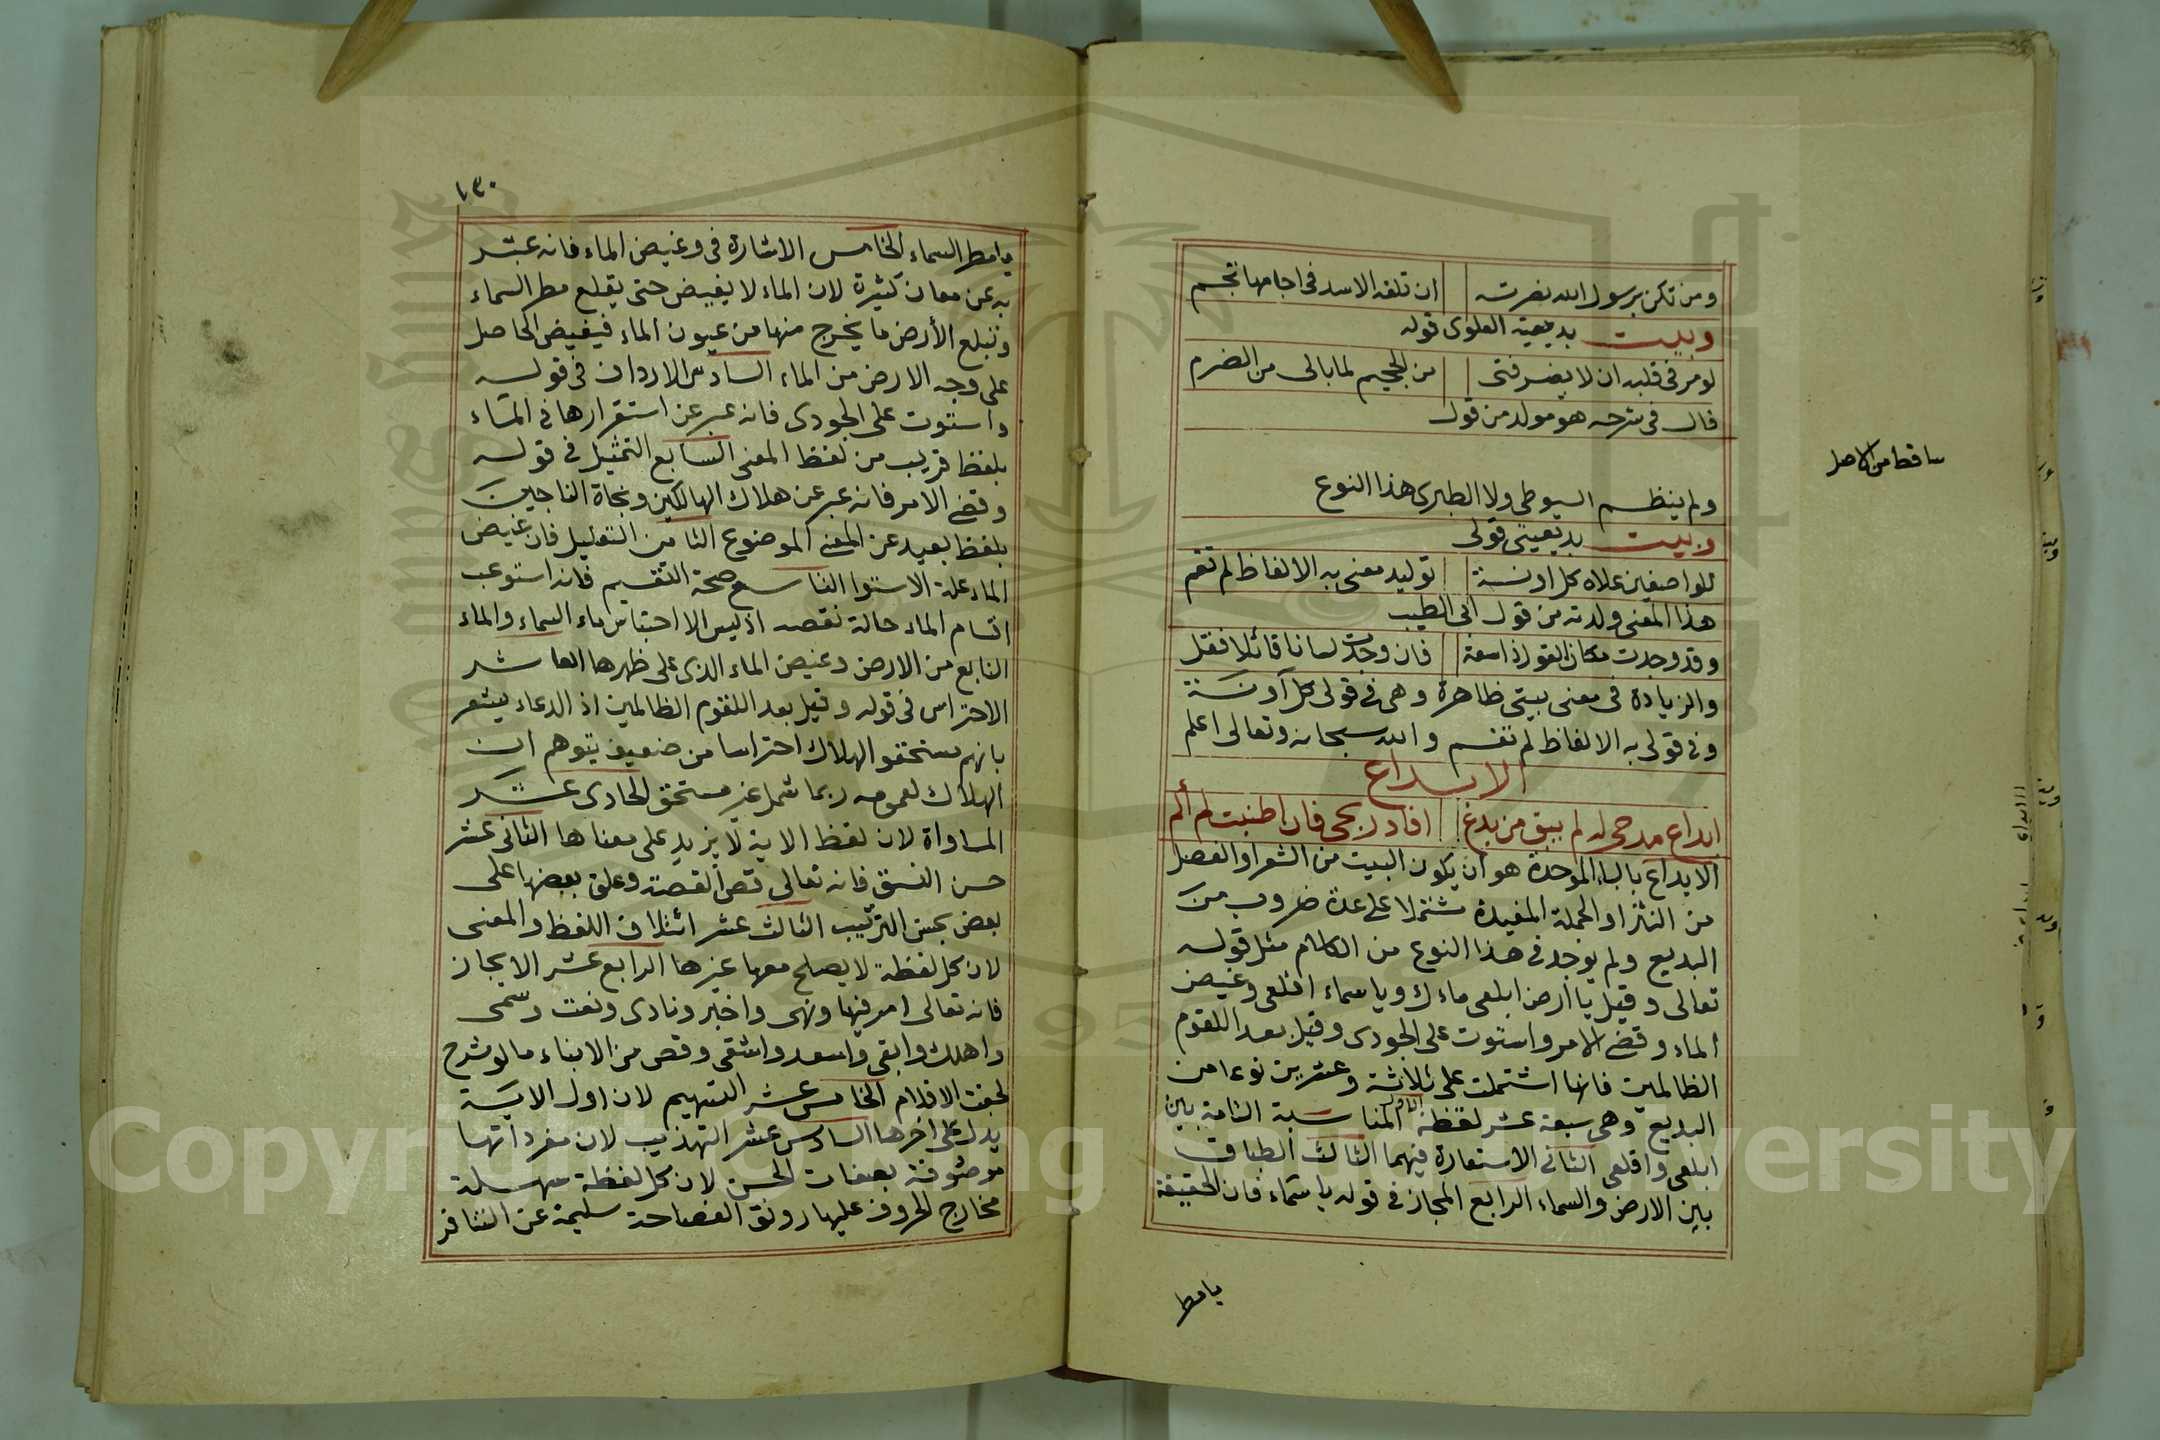 ومن تكن برسول الله نصرته ان تلقه الاسد فى اجامها تجم
وبيت بديعية العلوى قوله
لو مر فى قلبه ان لا يضر فتى من الجحيم لما بالى من الضرم
قال فى شرحه هو مولد من قول
ساقط من الاصل
ولم ينظم السيوطى ولا الطبرى هذا النوع
وبيت بديعيتى قولى
للواصفين علاه كل اونة توليد معنى به الالفاظ لم تقم
هذا المعنى ولدته من قول ابى الطيب
وقد وجدت مكان القول ذا سعة فان وجدت لسانا قائلا فقل
والزيادة فى معنى بيتى ظاهرة وهى فى قولى كل آونة
وفى قولى به الالفاظ لم تقم والله سبحانه وتعالى اعلم
الابداع
ابداع مدحى له لم يبق من بدع افاد ربحى فان اطنبت لم ألم
الابداع بالباء الموحدة هو أن يكون البيت من الشعر او الفصل
من النثر او الجملة المفيدة مشتملا على عدة ضروب من
البديع ولم يوجد فى هذا النوع من الكلام مثل قوله
تعالى وقيل يا أرض ابلعى ماءك ويا سماء اقلعى وغيض
الماء وقضى الامر واستوت على الجودى وقيل بعدا للقوم
الظالمين فانها اشتملت على ثلاثة وعشرين نوعا من
البديع وهى سبعة عشر لفظة الاول المناسبة التامة بين
ابلعى واقلعى الثانى الاستعارة فيهما الثالث الطباق
بين الارض والسماء الرابع المجاز فى قوله يا سماء فان الحقيقة
يا مطر
١٣٠
يا مطر السماء الخامس الاشارة فى وغيض الماء فانه عبر
به عن معان كثيرة لان الماء لا يغيض حتى يقلع مطر السماء
وتبلع الأرض ما يخرج منها من عيون الماء فيغيض الحاصل
على وجه الارض من الماء السادس الارداف فى قوله
واستوت على الجودى فانه عبر عن استقرارها فى الماء
بلفظ قريب من لفظ المعنى السابع التمثيل فى قوله
وقضى الامر فانه عبر عن هلاك الهالكين ونجاة الناجين
بلفظ بعيد عن المعنى الموضوع الثامن التعليل فان غيض
الماء علة الاستوا التاسع صحة التقسيم فانه استوعب
اقسام الماء حالة نقصه اذ ليس الا احتباس ماء السماء والماء
النابع من الارض وغيض الماء الذى على ظهرها العاشر
الاحتراس فى قوله وقيل بعدا للقوم الظالمين اذ الدعاء يشعر
بانهم مستحقو الهلاك احتراسا من ضعيف يتوهم ان
الهلاك لعمومه ربما شمل غير مستحق الحادى عشر
المساواة لان لفظ الاية لا يزيد على معناها الثانى عشر
حسن النسق فانه تعالى قص القصة وعطف بعضها على
بعض بحسن الترتيب الثالث عشر ائتلاف اللفظ والمعنى
لان كل لفظة لا يصلح معها غيرها الرابع عشر الايجاز
فانه تعالى امر فيها ونهى واخبر ونادى ونعت وسمى
واهلك وابقى واسعد واشقى وقص من الانباء ما لو شرح
لجفت الاقلام الخامس عشر التسهيم لان اول الاية
يدل على اخرها السادس عشر التهذيب لان مفرداتها
موصوفة بصفات الحسن لان كل لفظة سهلة
مخارج الحروف عليها رونق الفصاحة سليمة عن التنافر
Copyright © King Saud University